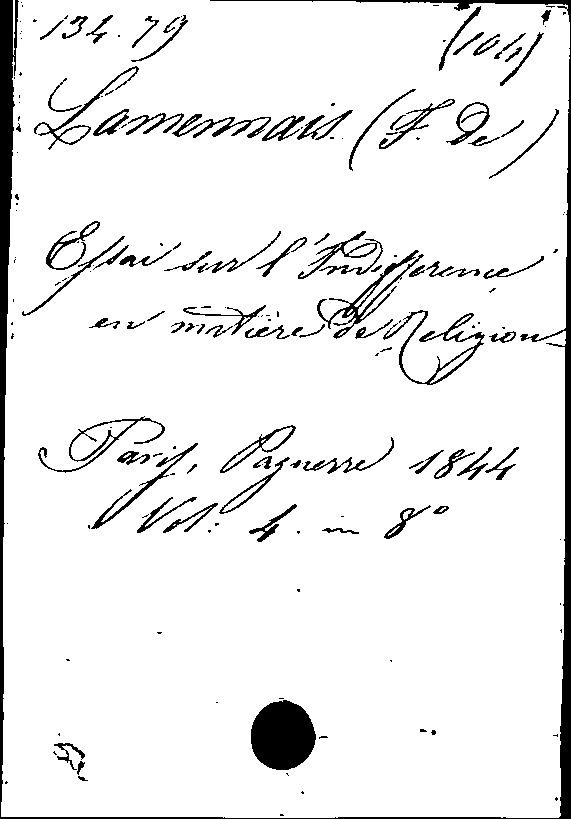 134.79 (104)
Lamennais (F. De)
Essai sur l'Indifference
en matière de Religion
Paris, Pagnerre 1844
Vol: 4. in 8°